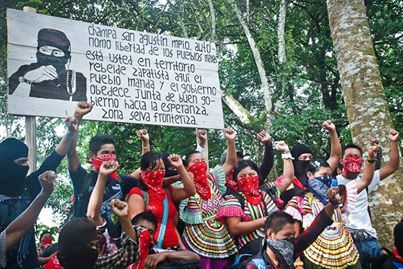 Champa san agustin mpio. auto
nomo libertad de los pueblos maya
está usted en territorio
rebelde zapatista aquí el
pueblo manda y el gobierno
obedece Junta de buen go-
bierno hacia la esperanza,
zona selva fronteriza